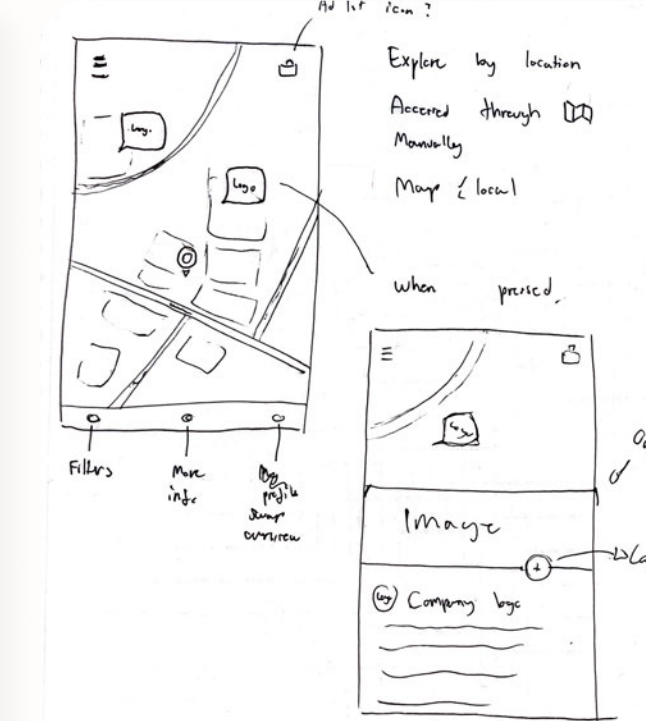 icon ?
Explore by location
Accessed through
Manually
Map & local
Logo
Logo
when pressed.
Filters
More
info
My
profile
overview
Logo
Image
+
Logo Company logo